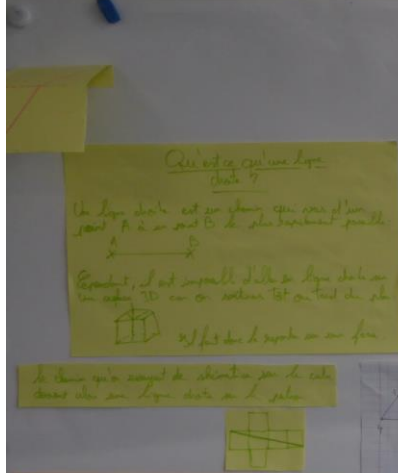 Qu'est ce qu'une ligne
droite ?
Une ligne droite est un chemin qui va d'un
point A à un point B le plus directement possible
A B
Cependant, il est impossible d'aller en ligne droite sur
un espace 3D car on sortira tôt ou tard du
Il faut donc le reporter sur une face
le chemin qu'on essayait de sur le cube
devient alors une ligne droite sur le patron